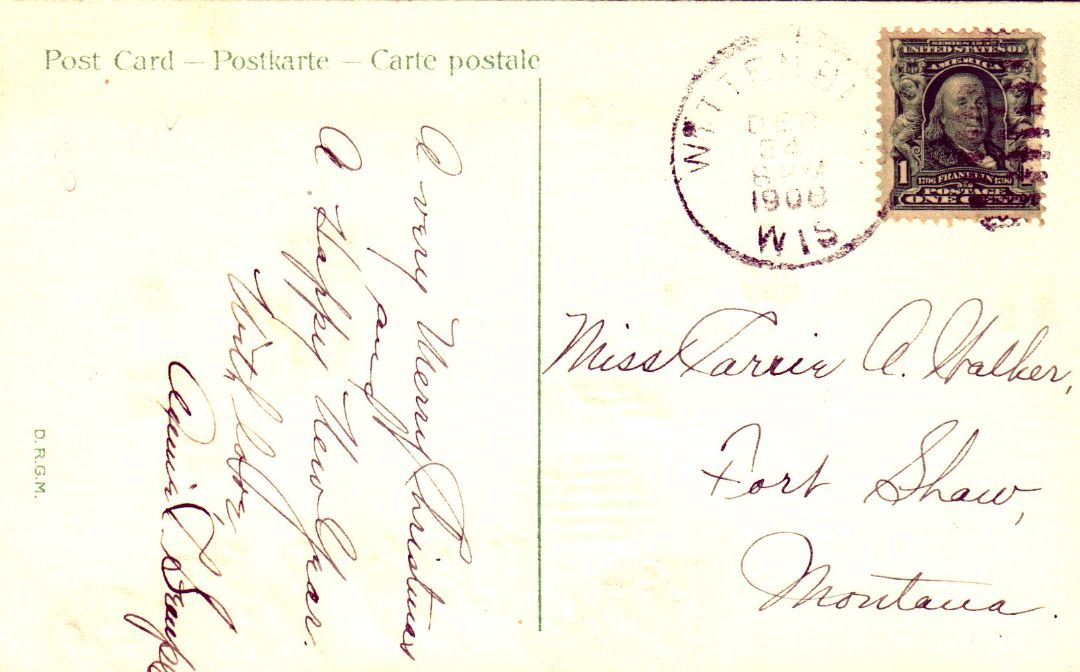 Post Card — Postkarte — Carte postale
A very Merry Christmas
and
A Happy New Year.
With love,
D.R.G.M.
WITTENB
DEC
24
1908
WIS
SERIES 1902
UNITED STATES OF
AMERICA
1
1706 FRANKLIN 1790
POSTAGE
ONE CENT
Miss Carrie A. Walker,
Fort Shaw,
Montana.